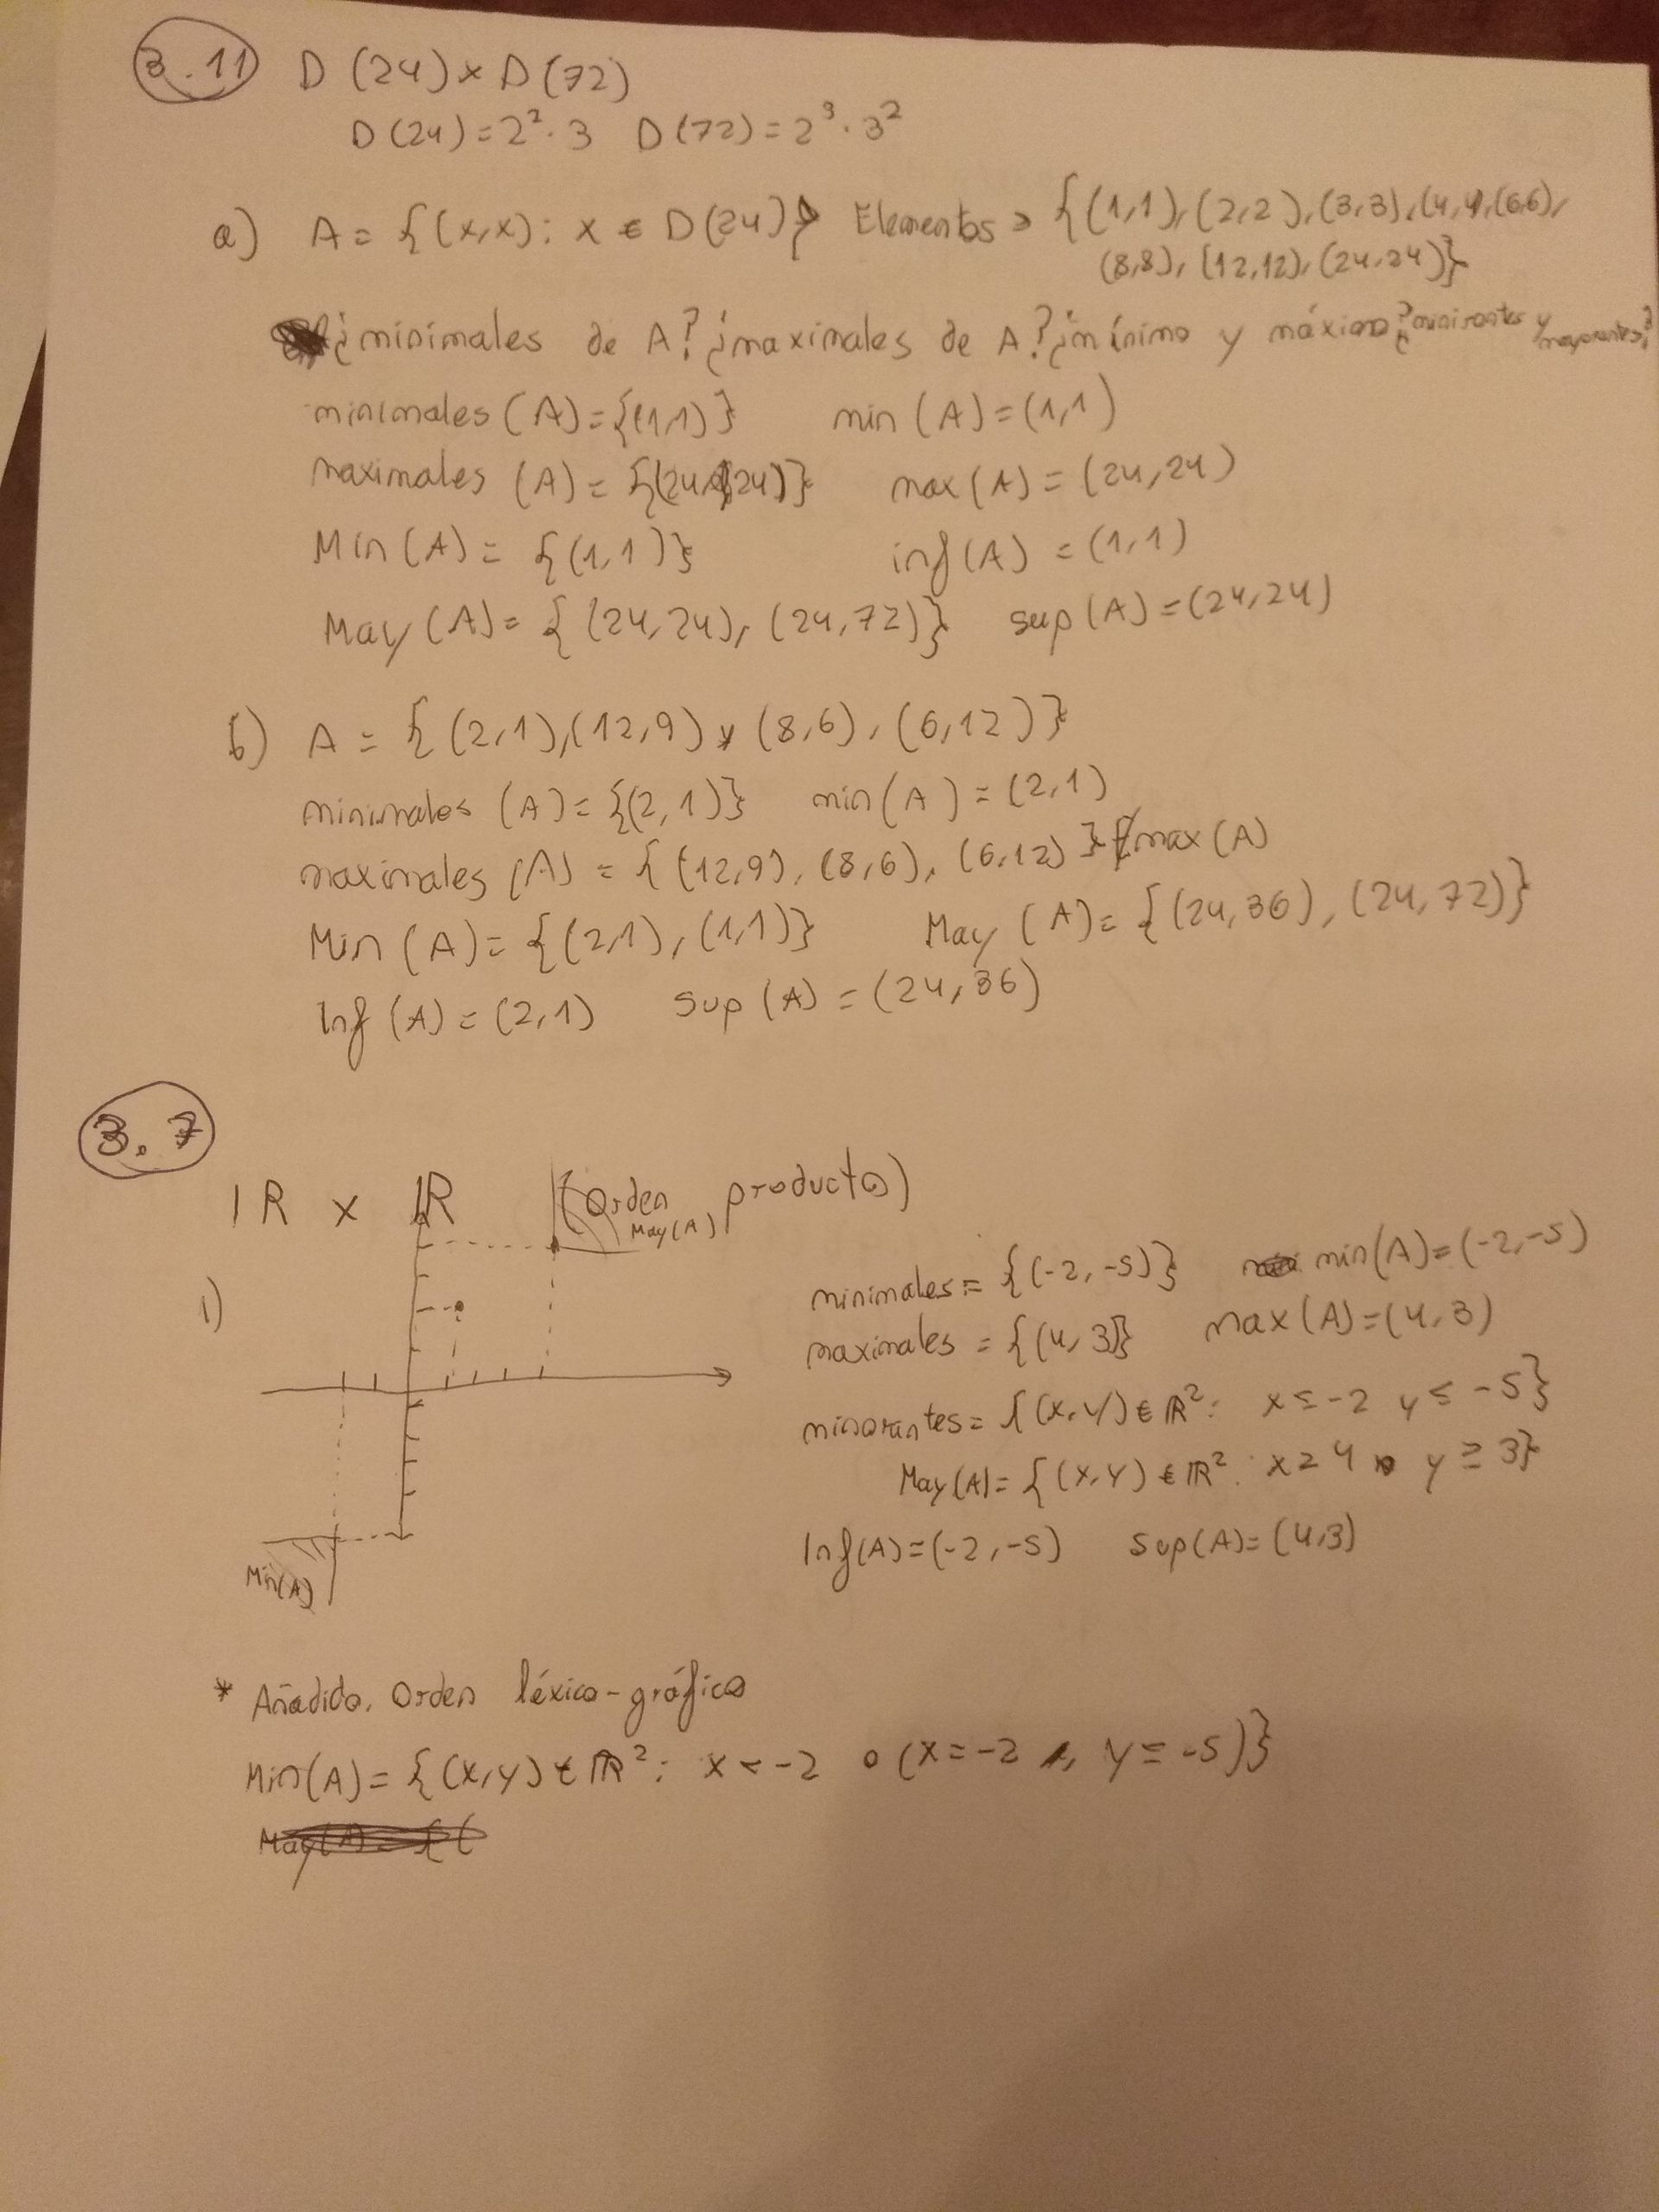 3.11 D(24) x D(72)
D(24) = 2² · 3 D(72) = 2³ · 3²
a) A = {(x,x) : x ∈ D(24)} Elementos > {(1,1), (2,2), (3,3), (4,4), (6,6),
(8,8), (12,12), (24,24)}
¿minimales de A? ¿maximales de A? ¿mínimo y máximo? ¿minorantes y mayorantes?
minimales (A) = {(1,1)} min (A) = (1,1)
maximales (A) = {(24,24)} max (A) = (24,24)
Min (A) = {(1,1)} inf (A) = (1,1)
May (A) = {(24,24), (24,72)} sup (A) = (24,24)
b) A = {(2,1), (12,9) y (8,6), (6,12)}
minimales (A) = {(2,1)} min (A) = (2,1)
maximales (A) = {(12,9), (8,6), (6,12)} ∄ max (A)
Min (A) = {(2,1), (1,1)} May (A) = {(24,36), (24,72)}
Inf (A) = (2,1) sup (A) = (24,36)
3.7
IR x IR (Orden producto)
May (A)
1)
minimales = {(-2,-5)} min (A) = (-2,-5)
maximales = {(4,3)} max (A) = (4,3)
minorantes = {(x,y) ∈ IR² : x ≤ -2 y ≤ -5}
May (A) = {(x,y) ∈ IR² : x ≥ 4 y ≥ 3}
Inf (A) = (-2,-5) Sup (A) = (4,3)
Min (A)
* Añadido. Orden léxico-gráfico
Min (A) = {(x,y) ∈ IR² : x < -2 o (x = -2 , y ≤ -5)}
May (A) = {(